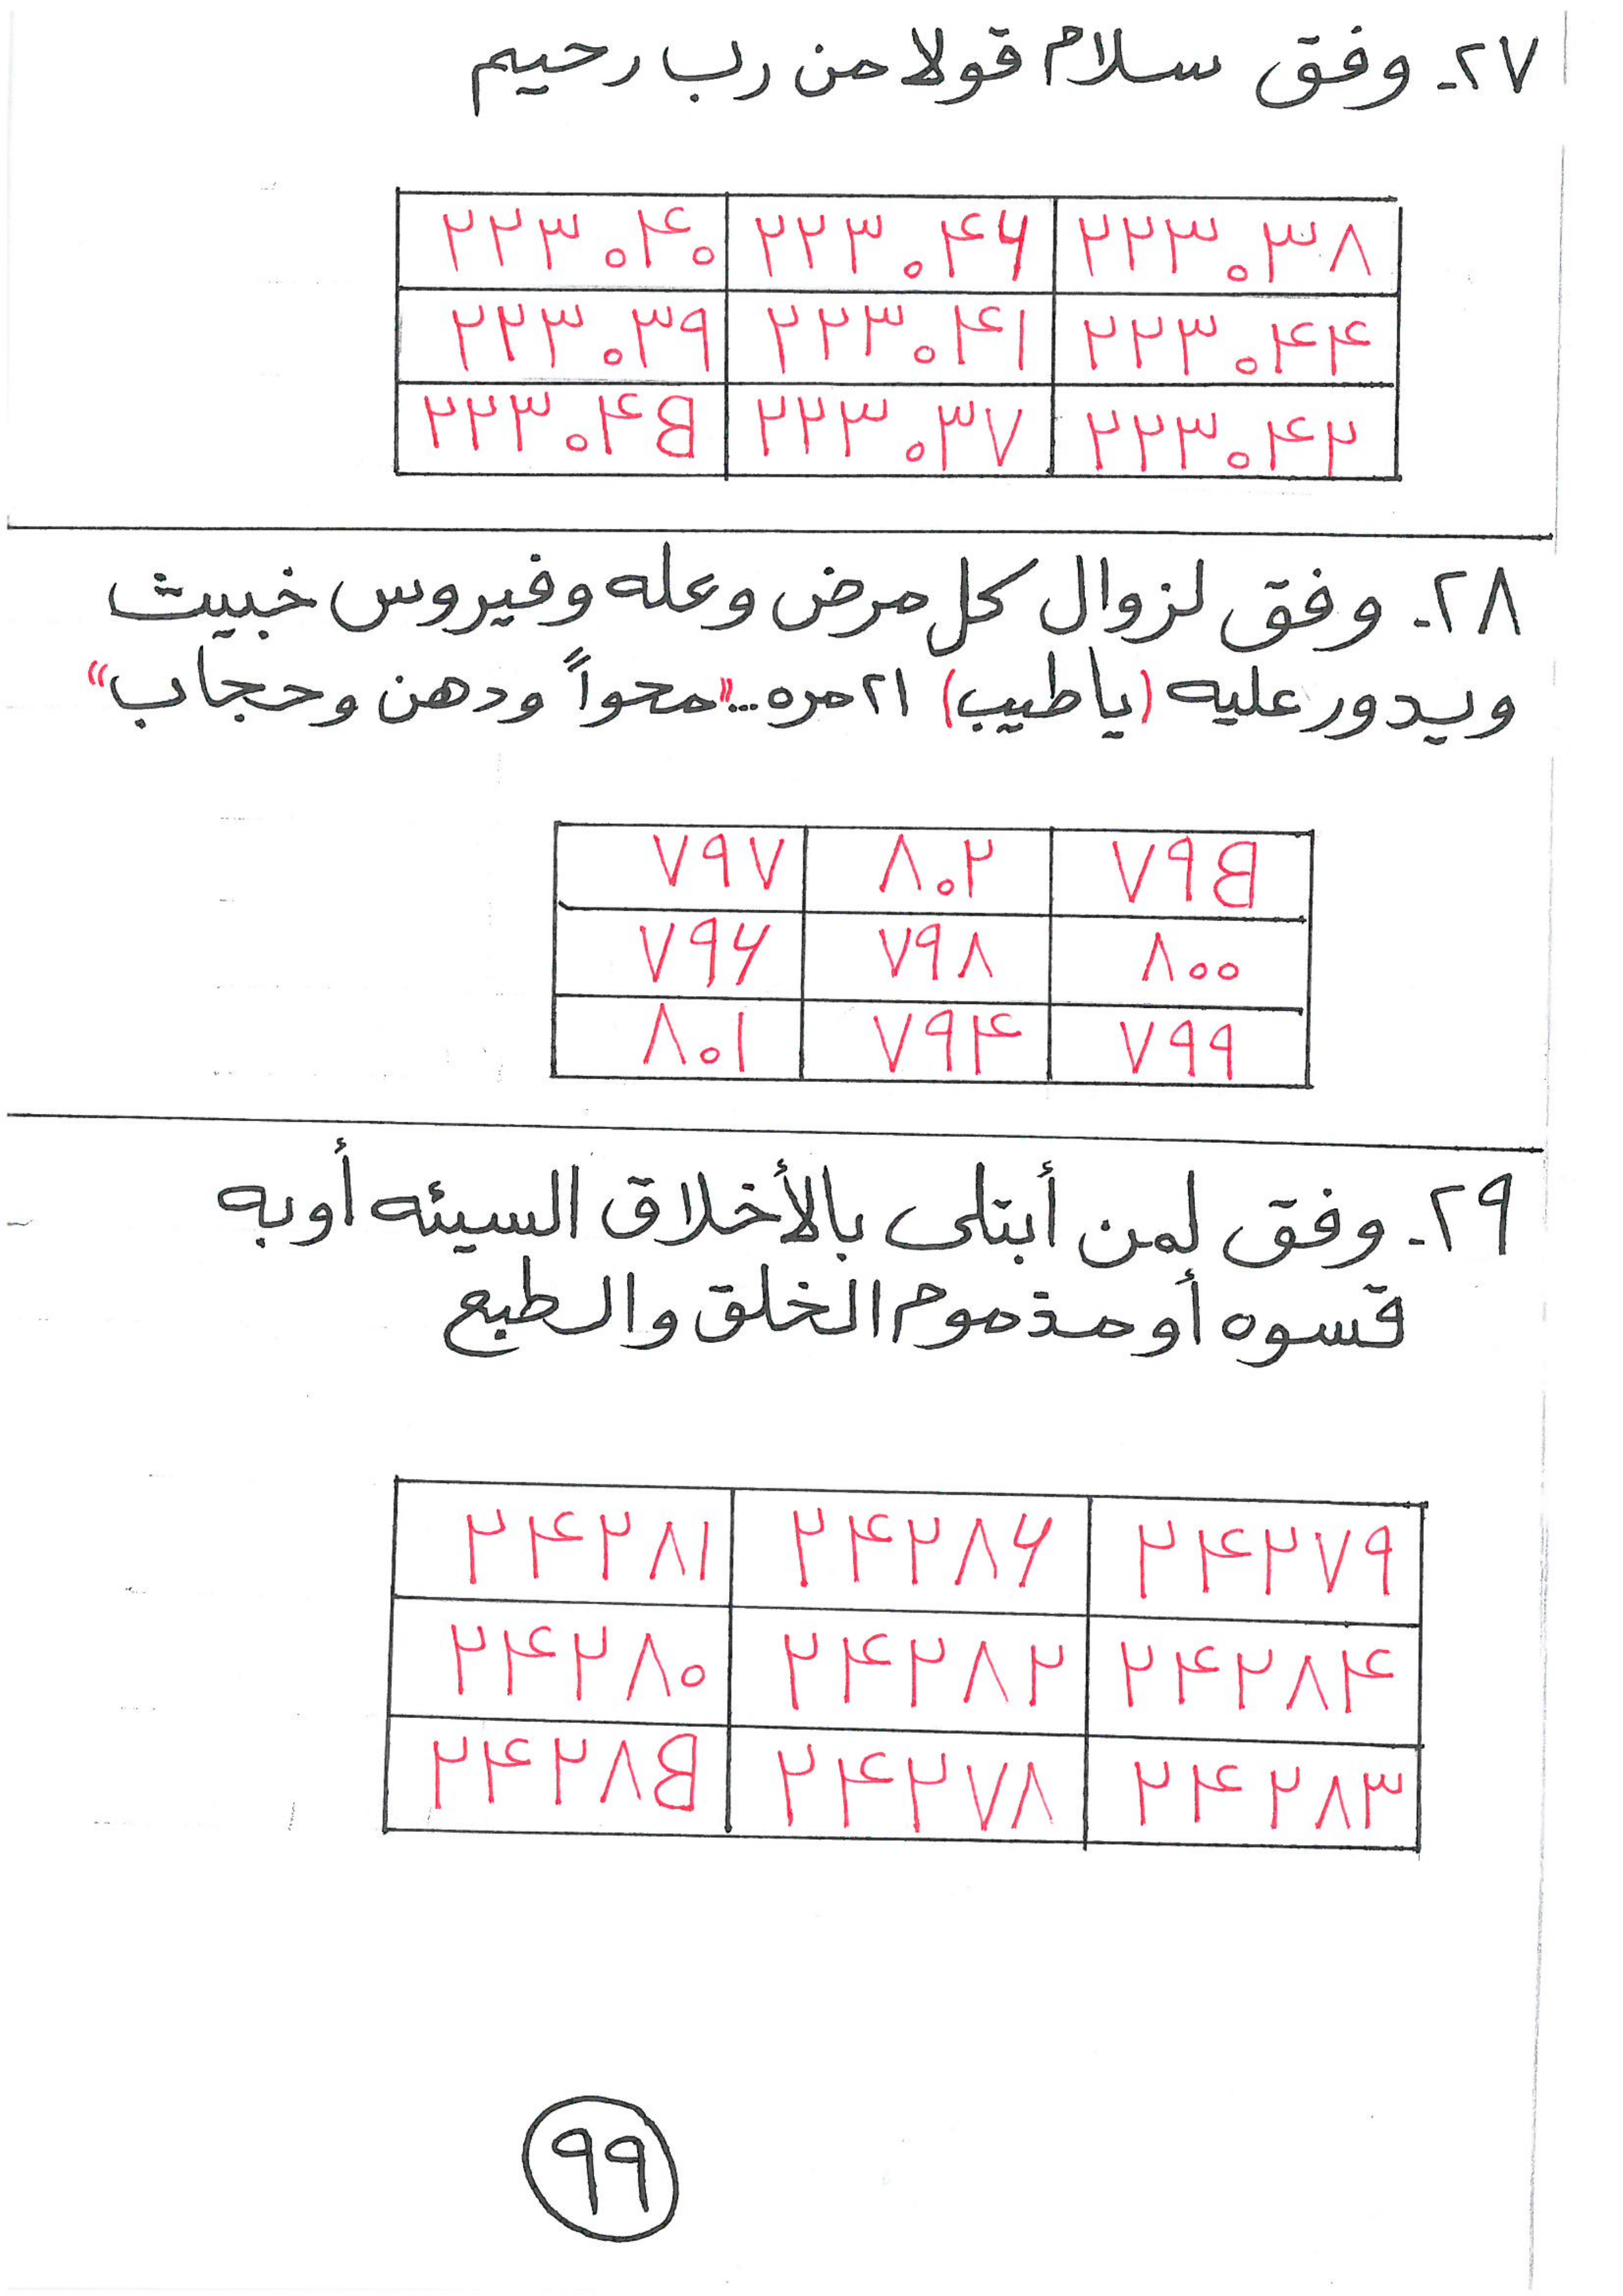 ٢٧- وفق سلام قولا من رب رحيم
٢٢٣٠٣٨ ٢٢٣٠٤٦ ٢٢٣٠٤٠
٢٢٣٠٤٤ ٢٢٣٠٤١ ٢٢٣٠٣٩
٢٢٣٠٤٢ ٢٢٣٠٣٧ ٢٢٣٠٤٥
٢٨- وفق لزوال كل مرض وعله وفيروس خبيث
ويدور عليه (يا طبيب) ٢١ مره... "محواً ودهن وحجاب"
٧٩٥ ٨٠٢ ٧٩٧
٨٠٠ ٧٩٨ ٧٩٦
٧٩٩ ٧٩٤ ٨٠١
٢٩- وفق لمن أبتلى بالأخلاق السيئه أو به
قسوه أو مذموم الخلق والطبع
٢٤٢٧٩ ٢٤٢٨٦ ٢٤٢٨١
٢٤٢٨٤ ٢٤٢٨٢ ٢٤٢٨٠
٢٤٢٨٣ ٢٤٢٧٨ ٢٤٢٨٥
٩٩